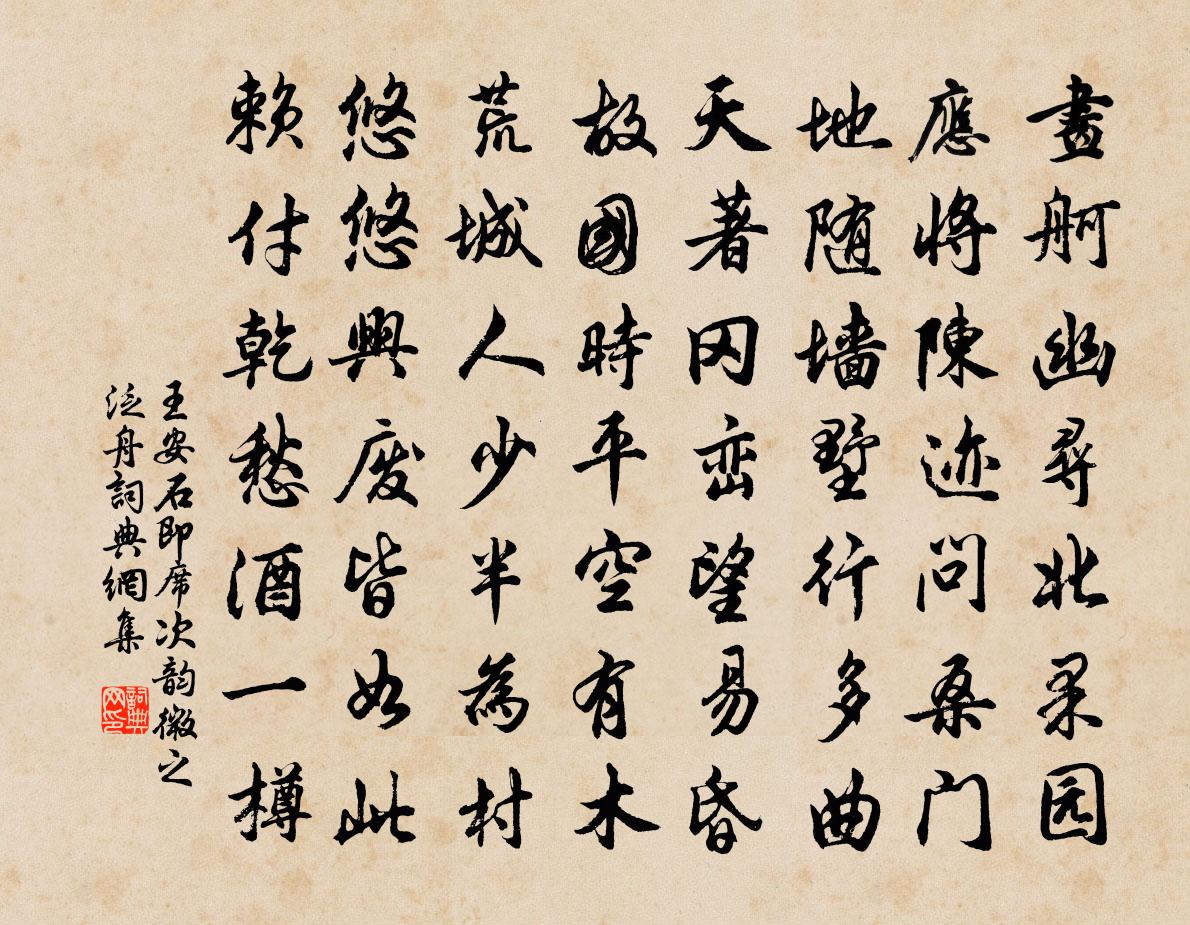 畫舸幽尋北果园
應將陳迹問桑门
地随墙墅行多曲
天著冈峦望易昏
故國時平空有木
荒城人少半為村
悠悠興废皆如此
赖付乾愁酒一樽
王安石即席次韵微之
泛舟詞典網集
詞典网印